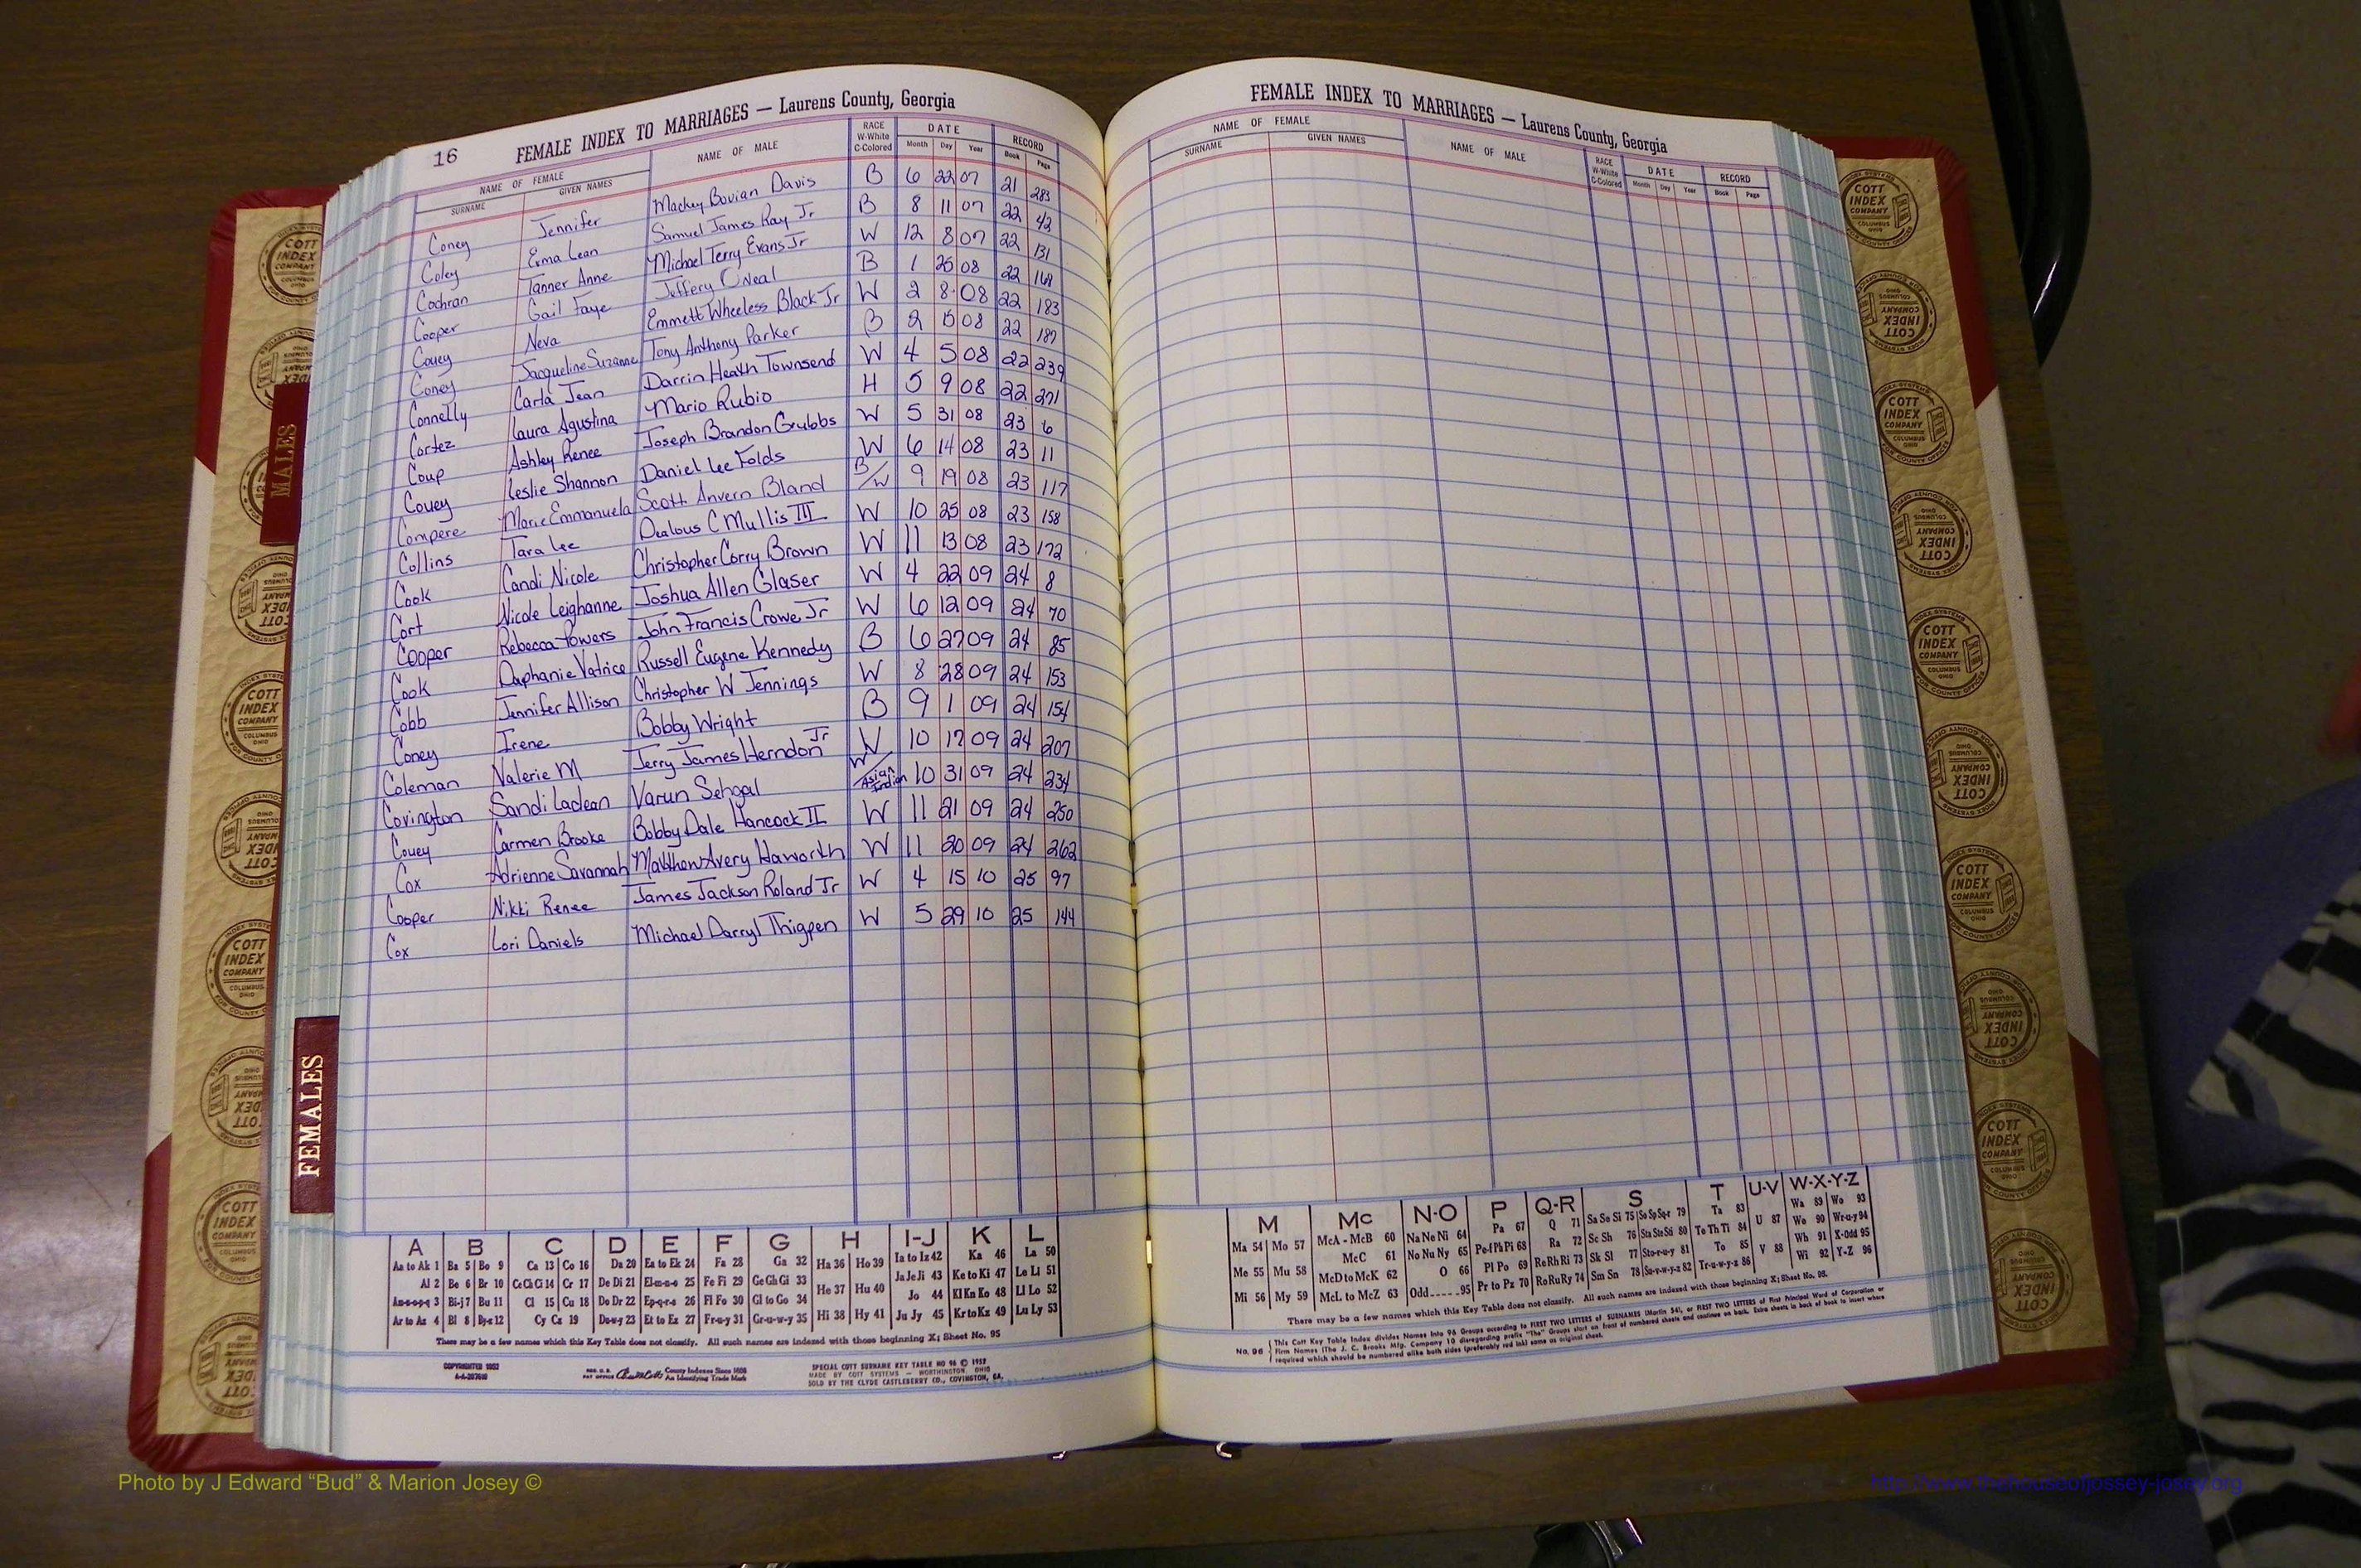 16 FEMALE INDEX TO MARRIAGES — Laurens County, Georgia
NAME OF FEMALE NAME OF MALE RACE W-White C-Colored DATE RECORD
SURNAME GIVEN NAMES Month Day Year Book Page
Coney Jennifer Mackey Bovian Davis B 6 22 07 21 283
Coley Erma Lean Samuel James Ray Jr B 8 11 07 22 42
Cochran Tanner Anne Michael Terry Evans Jr W 12 8 07 22 131
Cooper Gail Faye Jeffery O Neal B 1 26 08 22 168
Couey Neva Emmett Wheeless Black Jr W 2 8 08 22 183
Coney Jacqueline Suzanne Tony Anthony Parker B 2 08 22 187
Connelly Carla Jean Darrin Heath Townsend W 4 5 08 22 239
Cortez Laura Agustina Mario Rubio H 5 9 08 22 271
Coup Ashley Renee Joseph Brandon Grubbs W 5 31 08 23 6
Couey Leslie Shannon Daniel Lee Folds W 6 14 08 23 11
Compere Marie Emmanuela Scott Anvern Bland B/W 9 19 08 23 117
Collins Tara Lee Dealous C Mullis III W 10 25 08 23 158
Cook Candi Nicole Christopher Corry Brown W 11 13 08 23 172
Cort Nicole Leighanne Joshua Allen Glaser W 4 22 09 24 8
Cooper Rebecca Powers John Francis Crowe Jr W 6 12 09 24 70
Cook Daphanie Vatrice Russell Eugene Kennedy B 6 27 09 24 85
Cobb Jennifer Allison Christopher W Jennings W 8 28 09 24 153
Coney Irene Bobby Wright B 9 1 09 24 154
Coleman Valerie M Jerry James Herndon Jr W 10 17 09 24 207
Covington Sandi Laclean Varun Sehgal W/Asian Indian 10 31 09 24 234
Couey Carmen Brooke Bobby Dale Hancock II W 11 21 09 24 250
Cox Adrienne Savannah Matthew Avery Haworth W 11 20 09 24 262
Cooper Nikki Renee James Jackson Roland Jr W 4 15 10 25 97
Cox Lori Daniels Michael Darryl Thigpen W 5 29 10 25 144
A B C D E F G H I-J K L
Aa to Ak 1 Ba 5 Bo 9 Ca 13 Co 16 Da 20 Ea to Ek 24 Fa 28 Ga 32 Ha 36 Ho 39 Ia to Iz 42 Ka 46 La 50
Al 2 Be 6 Br 10 Ce Ch Ci 14 Cr 17 De Di 21 El-m-n-o 25 Fe Fi 29 Ge Gh Gi 33 He 37 Hu 40 Ja Je Ji 43 Ke to Ki 47 Le Li 51
An-s-o-p-q 3 Bi-j 7 Bu 11 Cl 15 Cu 18 Do Dr 22 Ep-q-r-s 26 Fl Fo 30 Gl to Go 34 Jo 44 Kl Kn Ko 48 Ll Lo 52
Ar to Az 4 Bl 8 By-z 12 Cy Cz 19 Du-w-y 23 Et to Ez 27 Fr-u-y 31 Gr-u-w-y 35 Hi 38 Hy 41 Ju Jy 45 Kr to Kz 49 Lu Ly 53
There may be a few names which this Key Table does not classify. All such names are indexed with those beginning X; Sheet No. 95
COPYRIGHTED 1952
REG. U.S. PAT OFFICE County Indexes Since 1888
An Identifying Trade Mark
SPECIAL COTT SURNAME KEY TABLE NO 96 © 1957
MADE BY COTT SYSTEMS — WORTHINGTON, OHIO
SOLD BY THE CLYDE CASTLEBERRY CO., COVINGTON, GA.
FEMALE INDEX TO MARRIAGES — Laurens County, Georgia
NAME OF FEMALE NAME OF MALE RACE W-White C-Colored DATE RECORD
SURNAME GIVEN NAMES Month Day Year Book Page
M Mc N-O P Q-R S T U-V W-X-Y-Z
Ma 54 Mo 57 McA - McB 60 Na Ne Ni 64 Pa 67 Q 71 Sa Se Si 75 So Sp Sq-r 79 Ta 83 U 87 Wa 89 Wo 93
Me 55 Mu 58 McC 61 No Nu Ny 65 Pe-f Ph Pi 68 Ra 72 Sc Sh 76 Sta Ste Sti 80 Te Th Ti 84 We 90 Wr-u-y 94
McD to McK 62 O 66 Pl Po 69 Re Rh Ri 73 Sk Sl 77 Sto-r-u-y 81 To 85 V 88 Wh 91 X-Odd 95
Mi 56 My 59 McL to McZ 63 Odd-----95 Pr to Pz 70 Ro Ru Ry 74 Sm Sn 78 Su-v-w-y-z 82 Tr-u-w-y-z 86 Wi 92 Y-Z 96
There may be a few names which this Key Table does not classify. All such names are indexed with those beginning X; Sheet No. 95.
No. 96 This Cott Key Table Index divides Names into 96 Groups according to FIRST TWO LETTERS of SURNAMES (Martin 54), or FIRST TWO LETTERS of First Principal Word of Corporation or
Firm Names (The J. C. Brooks Mfg. Company 10 disregarding prefix "The" Groups start on front of numbered sheets and continue on back. Extra sheets in back of book to insert where
required which should be numbered alike both sides (preferably red ink) same as original sheet.
MALES
FEMALES
COTT INDEX COMPANY
COLUMBUS OHIO
INDEX SYSTEMS
FOR COUNTY OFFICES
Photo by J Edward “Bud” & Marion Josey ©
http://www.thehouseofjossey-josey.org